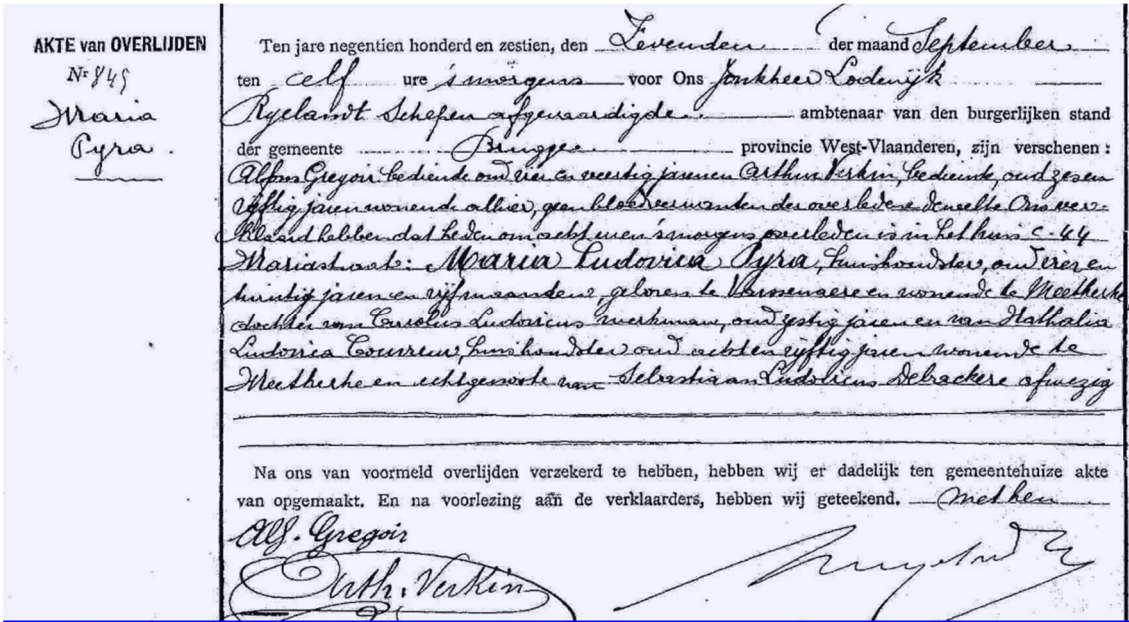 AKTE van OVERLIJDEN
Nr 849
Maria
Pyra.
Ten jare negentien honderd en zestien, den Zevenden der maand September
ten elf ure 's morgens voor Ons Jonkheer Lodewijk
Ryelandt Schepen afgevaardigde ambtenaar van den burgerlijken stand
der gemeente Brugge provincie West-Vlaanderen, zijn verschenen :
Alfons Gregoir bediende oud vier en veertig jaren en Arthur Verkin, bediende, oud zes en
vijftig jaren wonende alhier, geen bloedverwanten der overledene dewelke Ons ver-
klaard hebben dat heden om acht uren 's morgens overleden is in het huis C. 44
Mariastraat: Maria Ludovica Pyra, huishoudster, oud een en
twintig jaren en vijf maanden, geboren te Varssenaere en wonende te Meetkerke
dochter van Carolus Ludovicus werkman, oud zestig jaren en van Nathalia
Ludovica Couvreur, huishoudster oud acht en vijftig jaren wonende te
Meetkerke en echtgenoote van Sebastiaan Ludovicus Debackere afwezig
Na ons van voormeld overlijden verzekerd te hebben, hebben wij er dadelijk ten gemeentehuize akte
van opgemaakt. En na voorlezing aan de verklaarders, hebben wij geteekend. met hen
Alf. Gregoir
Arth. Verkin